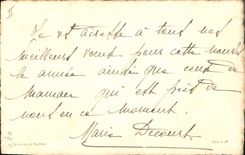 Je vs adresse à tous nos
meilleurs vœux pour cette nouvel
le année ainsi que ceux de
maman qui est près de
nous en ce moment.
Marie Decourt